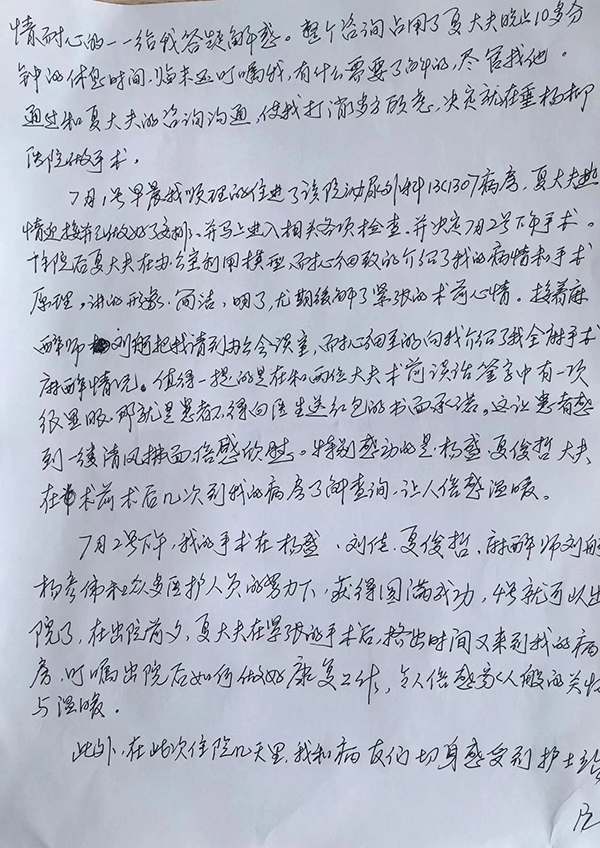 情耐心的一一给我答题解惑。整个咨询占用了夏大夫晚上10多分
钟的休息时间,临末还叮嘱我,有什么需要了解的,尽管找他。
通过和夏大夫的咨询沟通,使我打消多方顾虑,决定就在垂杨柳
医院做手术。
7月1号早晨我顺理的住进了该院泌尿外科13C1307病房,夏大夫热
情迎接并已做好了安排、并马上进入相关各项检查。并决定7月2号下午手术。
住院后夏大夫在办公室利用模型,耐心细致的介绍了我的病情和手术
原理,讲的形象、简洁、明了,尤其缓解了紧张的术前心情。接着麻
醉师刘舸把我请到办公会谈室,耐心细至的向我介绍了我全麻手术
麻醉情况。值得一提的是在和两位大夫术前谈话签字中有一项
很显眼,那就是患者不得向医生送红包的书面承诺。这让患者感
到一缕清风拂面,倍感欣慰。特别感动的是,杨盛、夏俊哲大夫
在术前术后几次到我的病房了解查询,让人倍感温暖。
7月2号下午,我的手术在杨盛、刘佳、夏俊哲、麻醉师刘舸
杨彦伟和众多医护人员的努力下,获得圆满成功,4号就可以出
院了,在出院前夕,夏大夫在紧张的手术后,挤出时间又来到我的病
房,叮嘱出院后如何做好康复工作,令人倍感家人般的关怀
与温暖。
此外,在此次住院几天里,我和病友们切身感受到护士站